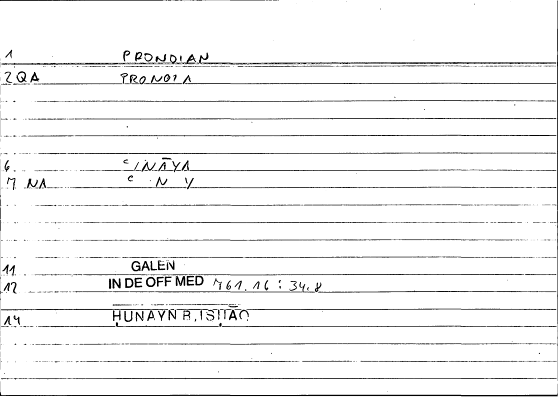 1 PRONOIAN
2 QA PRONOIA
6 ʿINĀYA
7 NA ʿ N Y
11 GALEN
12 IN DE OFF MED 761.16 : 34.8
14 ḤUNAYN B.ISḤĀQ